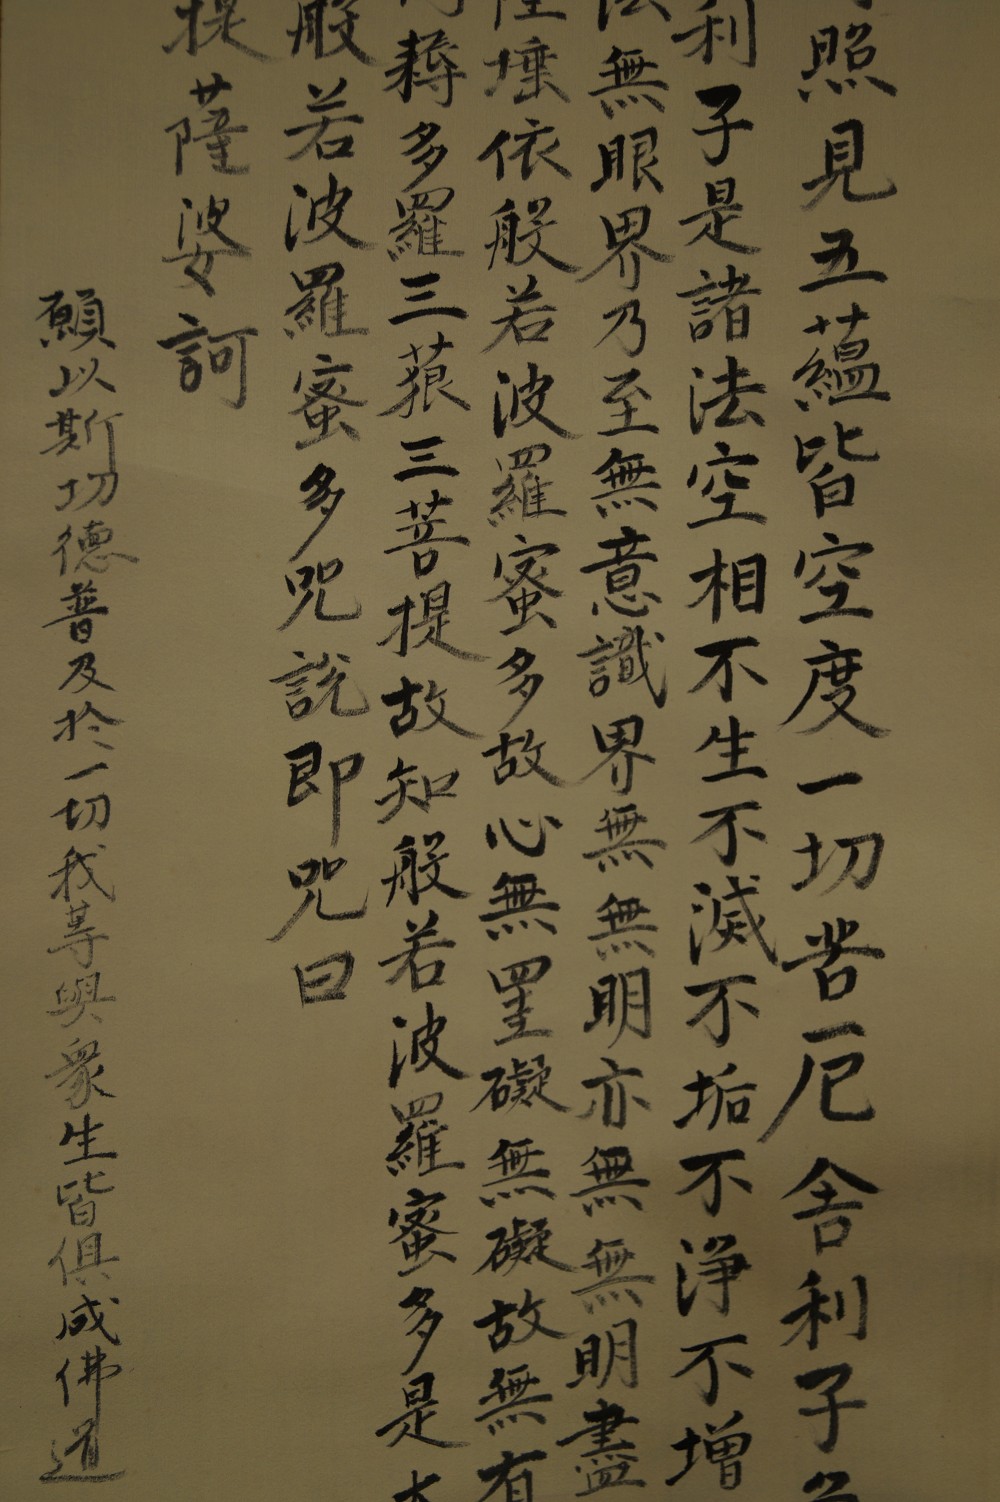 照見五蘊皆空度一切苦厄舍利子
利子是諸法空相不生不滅不垢不淨不增
法無眼界乃至無意識界無無明亦無無無明盡
埵依般若波羅蜜多故心無罣礙無礙故無有
耨多羅三藐三菩提故知般若波羅蜜多是
般若波羅蜜多咒說即咒曰
提薩婆訶
願以斯功德普及於一切我等與眾生皆俱成佛道